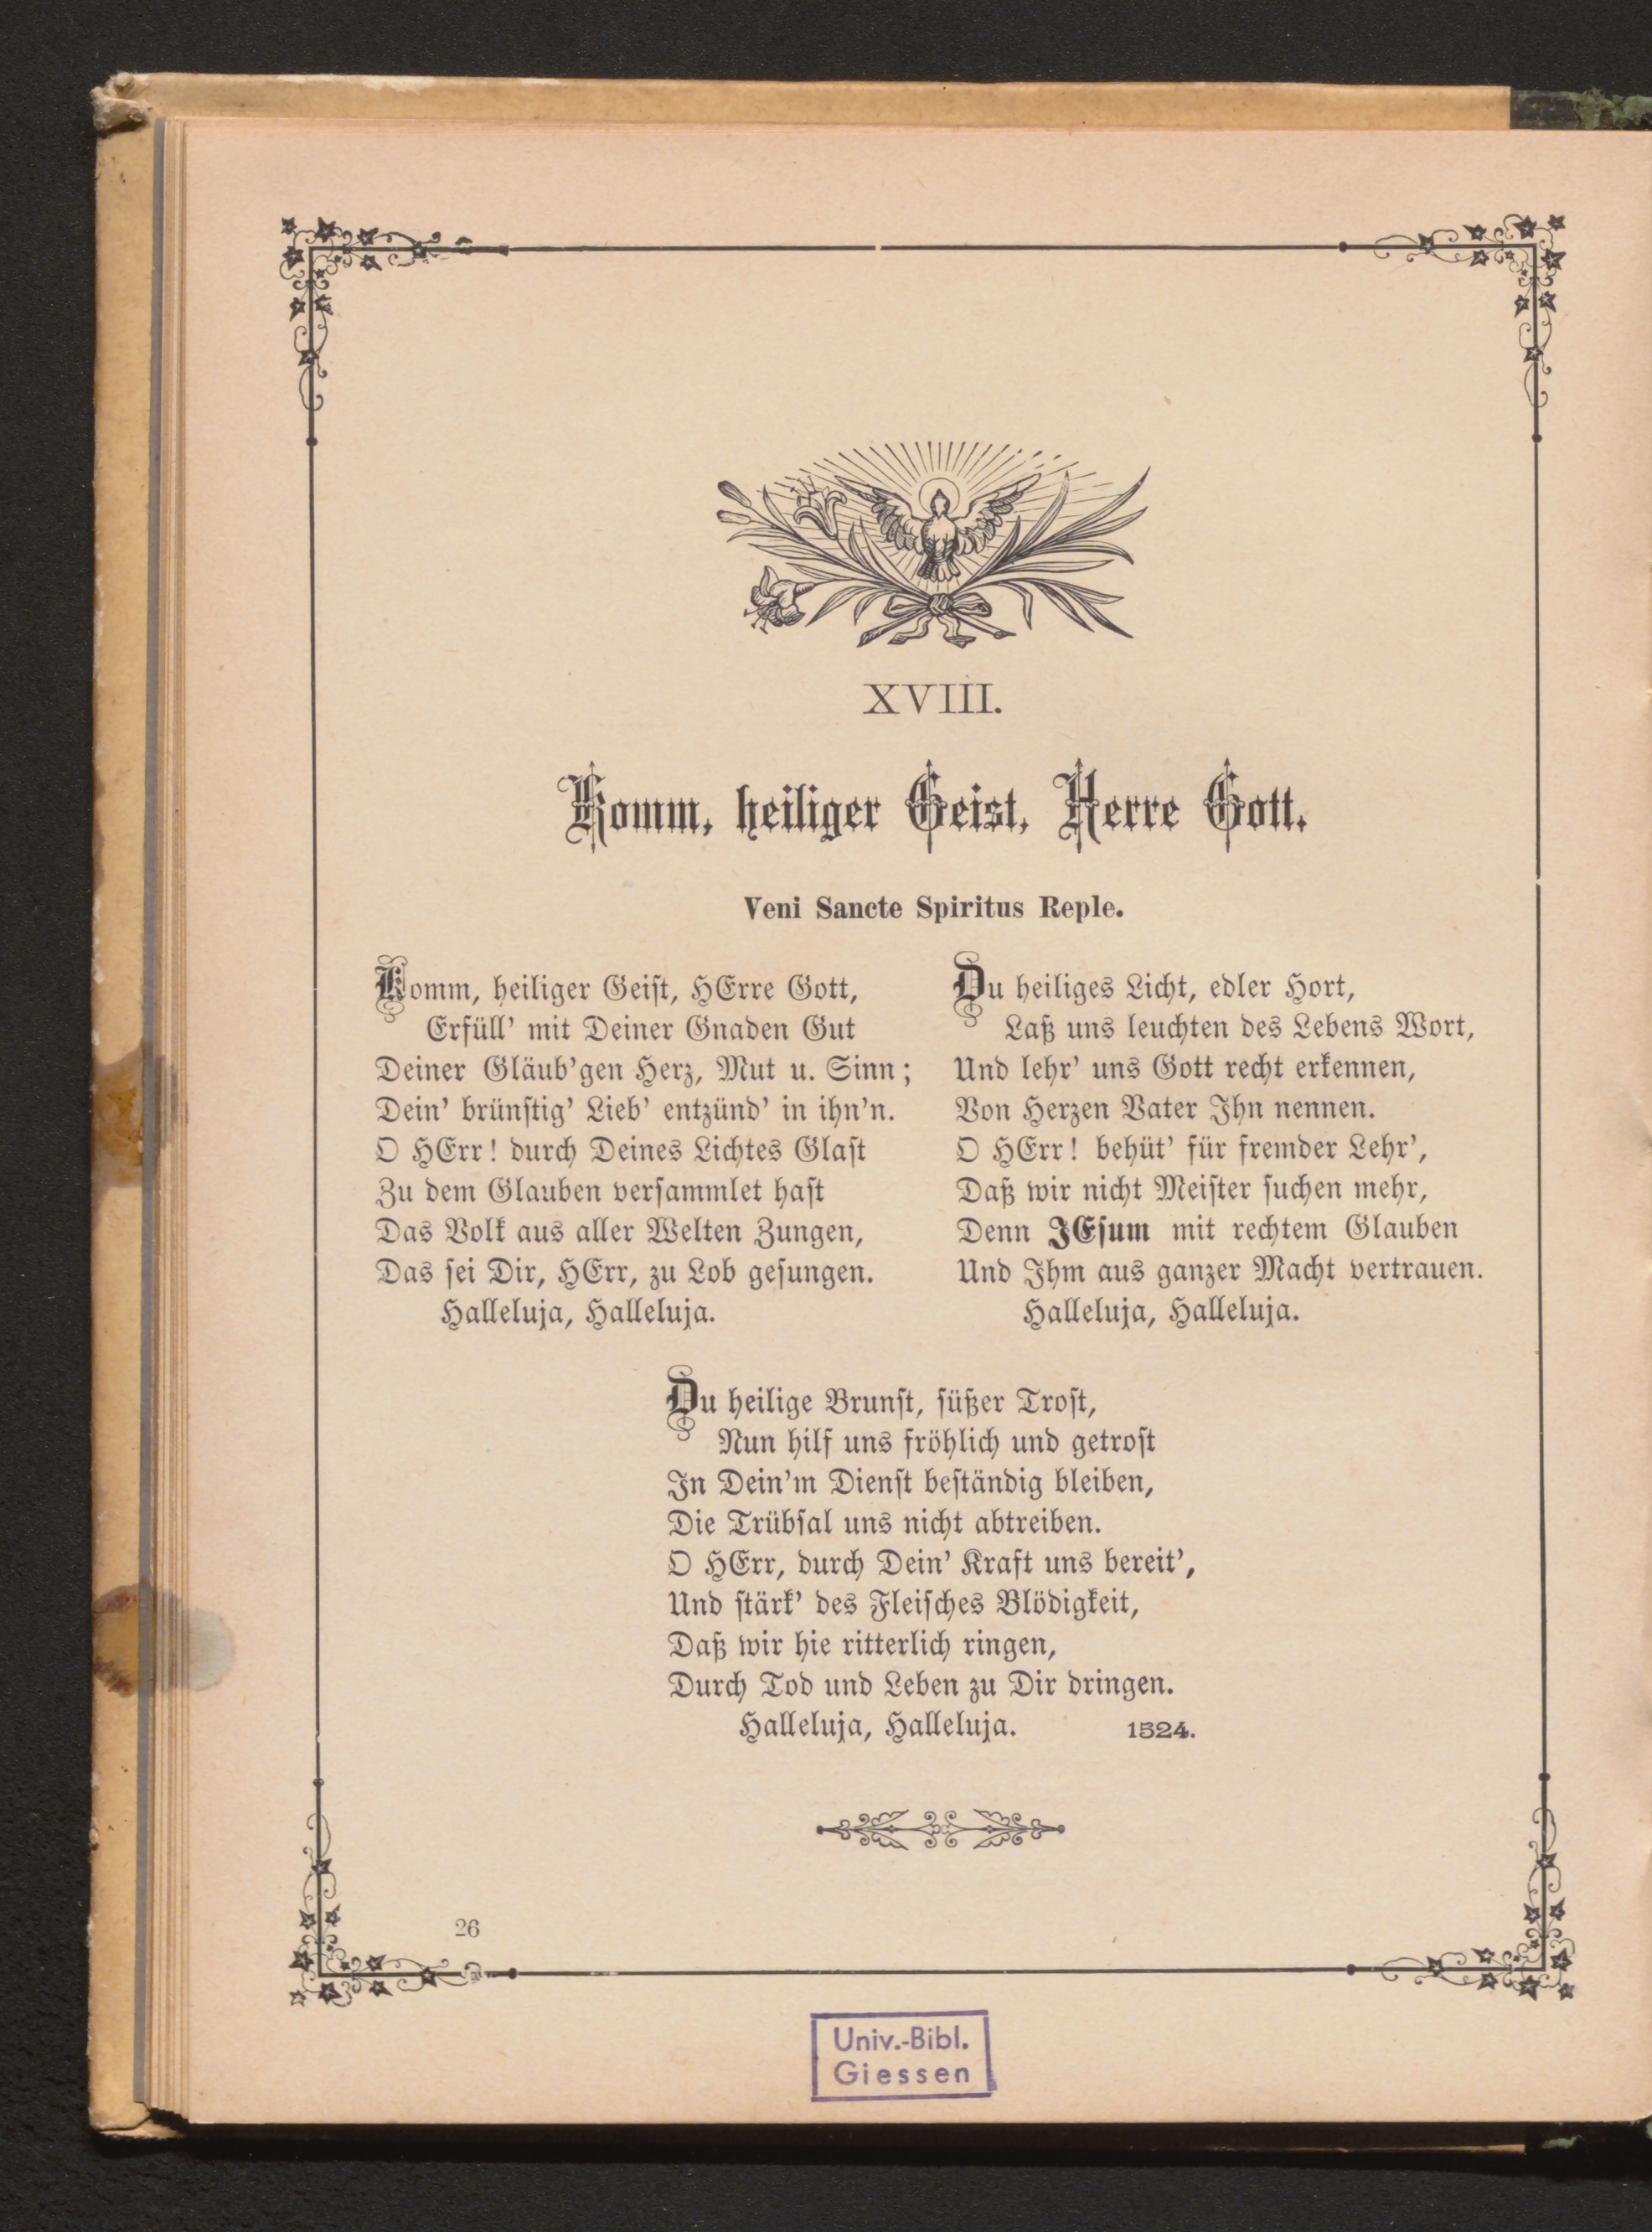 XVIII.
Komm, heiliger Geist, Herre Gott.
Veni Sancte Spiritus Reple.
Komm, heiliger Geist, HErre Gott,
Erfüll’ mit Deiner Gnaden Gut
Deiner Gläub’gen Herz, Mut u. Sinn;
Dein’ brünstig’ Lieb’ entzünd’ in ihn’n.
O HErr! durch Deines Lichtes Glast
Zu dem Glauben versammlet hast
Das Volk aus aller Welten Zungen,
Das sei Dir, HErr, zu Lob gesungen.
Halleluja, Halleluja.
Du heiliges Licht, edler Hort,
Laß uns leuchten des Lebens Wort,
Und lehr’ uns Gott recht erkennen,
Von Herzen Vater Ihn nennen.
O HErr! behüt’ für fremder Lehr’,
Daß wir nicht Meister suchen mehr,
Denn JEsum mit rechtem Glauben
Und Ihm aus ganzer Macht vertrauen.
Halleluja, Halleluja.
Du heilige Brunst, süßer Trost,
Nun hilf uns fröhlich und getrost
In Dein’m Dienst beständig bleiben,
Die Trübsal uns nicht abtreiben.
O HErr, durch Dein’ Kraft uns bereit’,
Und stärk’ des Fleisches Blödigkeit,
Daß wir hie ritterlich ringen,
Durch Tod und Leben zu Dir dringen.
Halleluja, Halleluja. 1524.
26
Univ.-Bibl.
Giessen